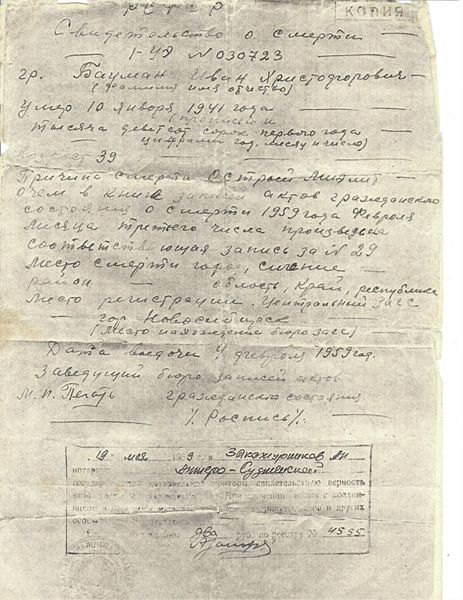 КОПИЯ
Свидетельство о смерти
I-УЯ N 030723
гр. Бауман Иван Христофорович
(фамилия имя отчество)
умер 10 января 1941 года
(прописью и
тысяча девятсот сорок первого года
цифрами год, месяц и число)
Возрост 39
Причина смерти Острый миэлит
о чем в книге записи актов гражданского
состояния о смерти 1959 года Февроля
месяца третьего числа произведена
соответствующая запись за N 29
Место смерти город, селение —
район — область, край, республика
Место регистрации, Центральный Загс
гор Новосибирск
(место нахождение бюро загс)
Дата выдочи 4 февроля 1959 год.
Заведущий бюро записей актов
М. П. Печать гражданского состояния
% Роспись %
19 мая г. я
нотариус Анжеро-Судженской
государственной нотариальной конторы свидетельствую верность
этой копии с подлинником
два руб. по реестру № 4555